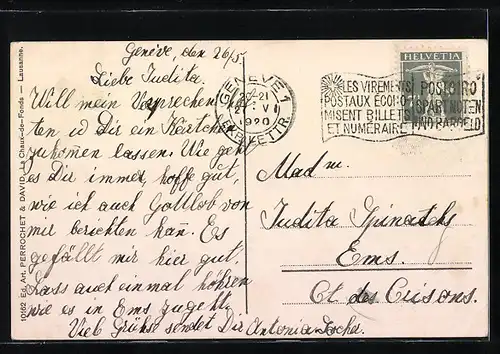 Genéve, den 26/5.
Liebe Judita.
Will mein Versprechen hal-
ten u Dir ein Kärtchen
zukomen lassen. Wie geht
es Dir immer, hoffe gut,
wie ich auch Gottlob von
mir berichten kañ. Es
gefällt mir hier gut.
Lass auch einmal höhren
wie es in Ems zugeht.
Viel Grüße sendet Dir Antonia
10160 Ed. Art. PERROCHET & DAVID, La Chaux-de-Fonds — Lausanne.
GENÈVE 1
VI
1920
HELVETIA
LES VIREMENTS
POSTAUX ÉCONO-
MISENT BILLETS
ET NUMÉRAIRE
POSTGIRO
SPART NOTEN
UND BARGELD
Mad m.
Judita
Ems.
Ct. des Grisons.